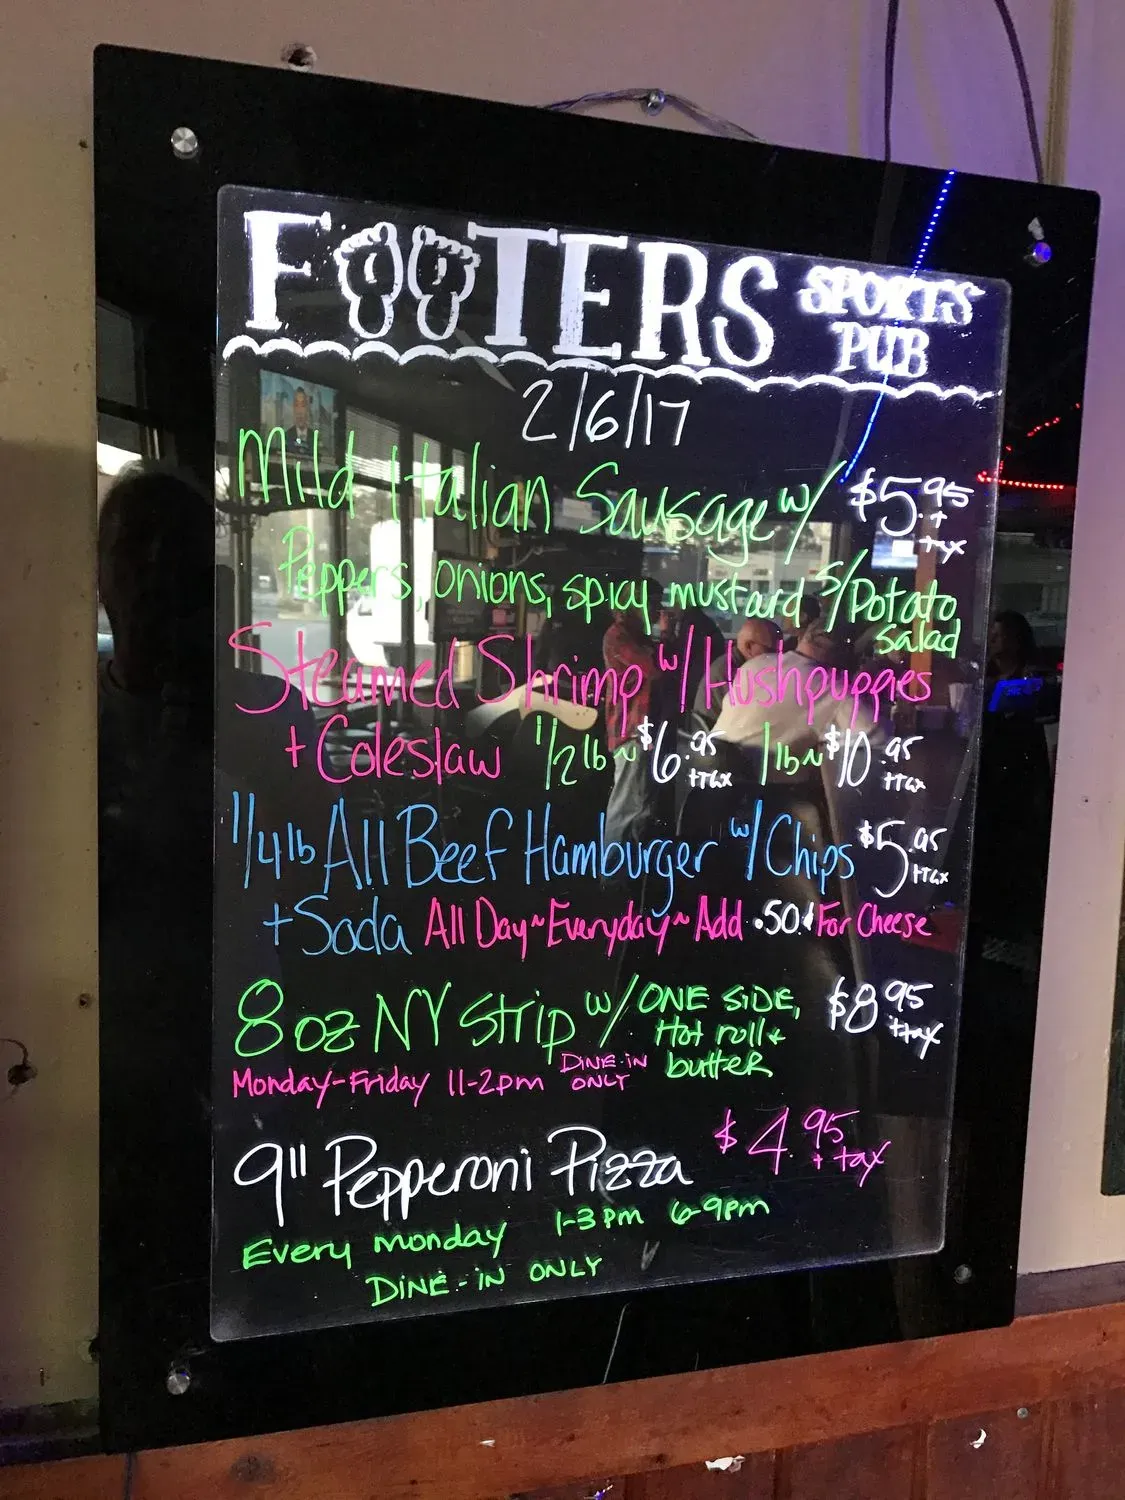 FOOTERS SPORTS PUB
2/6/17
Mild Italian Sausage w/ $5.95 + tax
Peppers, onions, spicy mustard s/Potato Salad
Steamed Shrimp w/ Hushpuppies
+ Coleslaw 1/2 lb ~ $6.95 + tax 1 lb ~ $10.95 + tax
1/4 lb All Beef Hamburger w/ Chips $5.95 + tax
+ Soda All Day ~ Everyday ~ Add .50¢ For Cheese
8 oz NY Strip w/ ONE SIDE, Hot roll + butter $8.95 + tax
Monday-Friday 11-2pm DINE-IN ONLY
9" Pepperoni Pizza $4.95 + tax
Every monday 1-3pm 6-9pm
DINE-IN ONLY